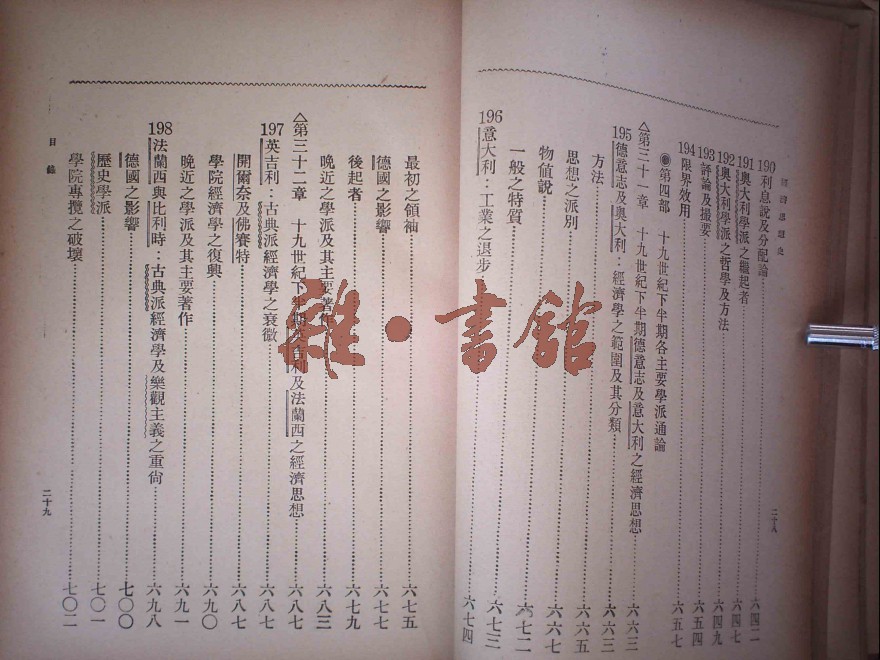 經濟思想史
190利息說及分配論……六四二
191奧大利學派之繼起者……六四七
192奧大利學派之哲學及方法……六四九
193評論及撮要……六五四
194限界效用……六五七
●第四部 十九世紀下半期各主要學派通論
△第三十一章 十九世紀下半期德意志及意大利之經濟思想……六六三
195德意志及奧大利:經濟學之範圍及其分類……六六三
方法……六六三
思想之派別……六六五
物值說……六六七
一般之特質……六七二
196意大利:工業之退步……六七三
二十八
最初之領袖……六七五
德國之影響……六七七
後起者……六七九
晚近之學派及其主要著作……六八三
△第三十二章 十九世紀下半期英吉利及法蘭西之經濟思想……六八七
197英吉利:古典派經濟學之衰微……六八七
開爾奈及佛賽特……六八七
學院經濟學之復興……六九〇
晚近之學派及其主要著作……六九一
198法蘭西與比利時:古典派經濟學及樂觀主義之重尙……六九八
德國之影響……七〇〇
歷史學派……七〇一
學院專攬之破壞……七〇二
目錄
二十九
雜·書館